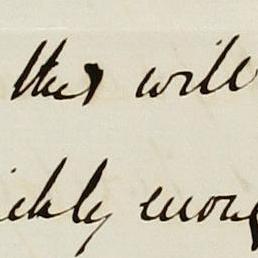 they will
ickly enoug